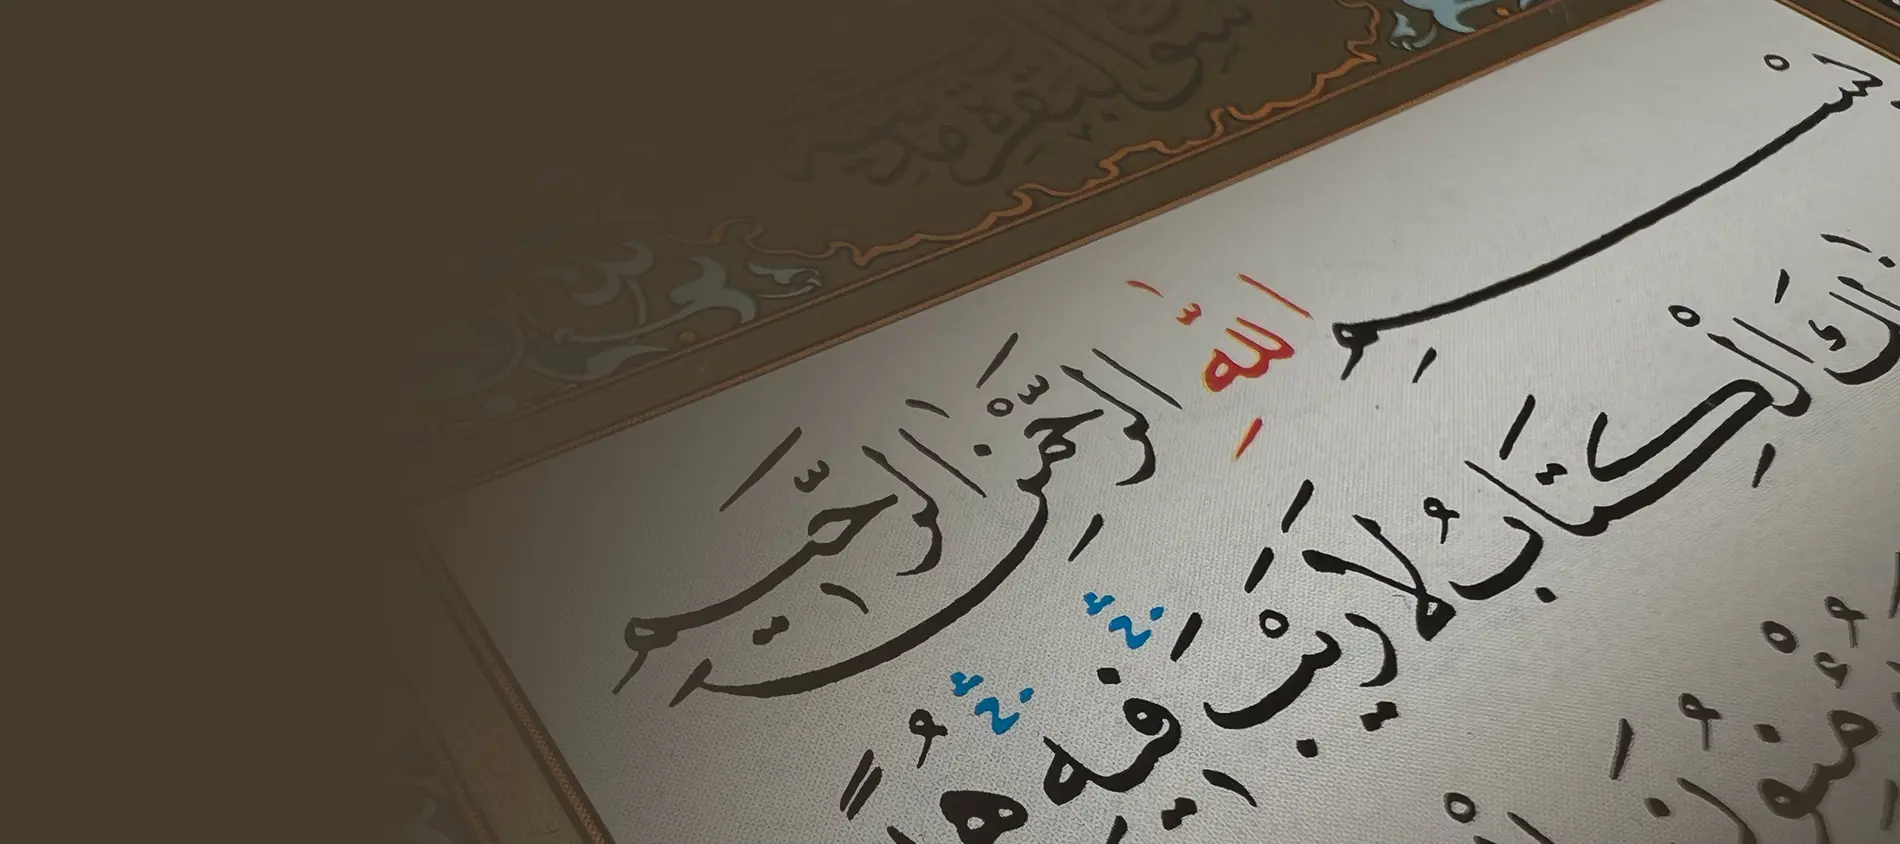 سورة البقرة مدنية
بِسْمِ اللَّهِ الرَّحْمَنِ الرَّحِيمِ
ذَلِكَ الْكِتَابُ لَا رَيْبَ فِيهِ هُدًى
يُؤْمِنُونَ